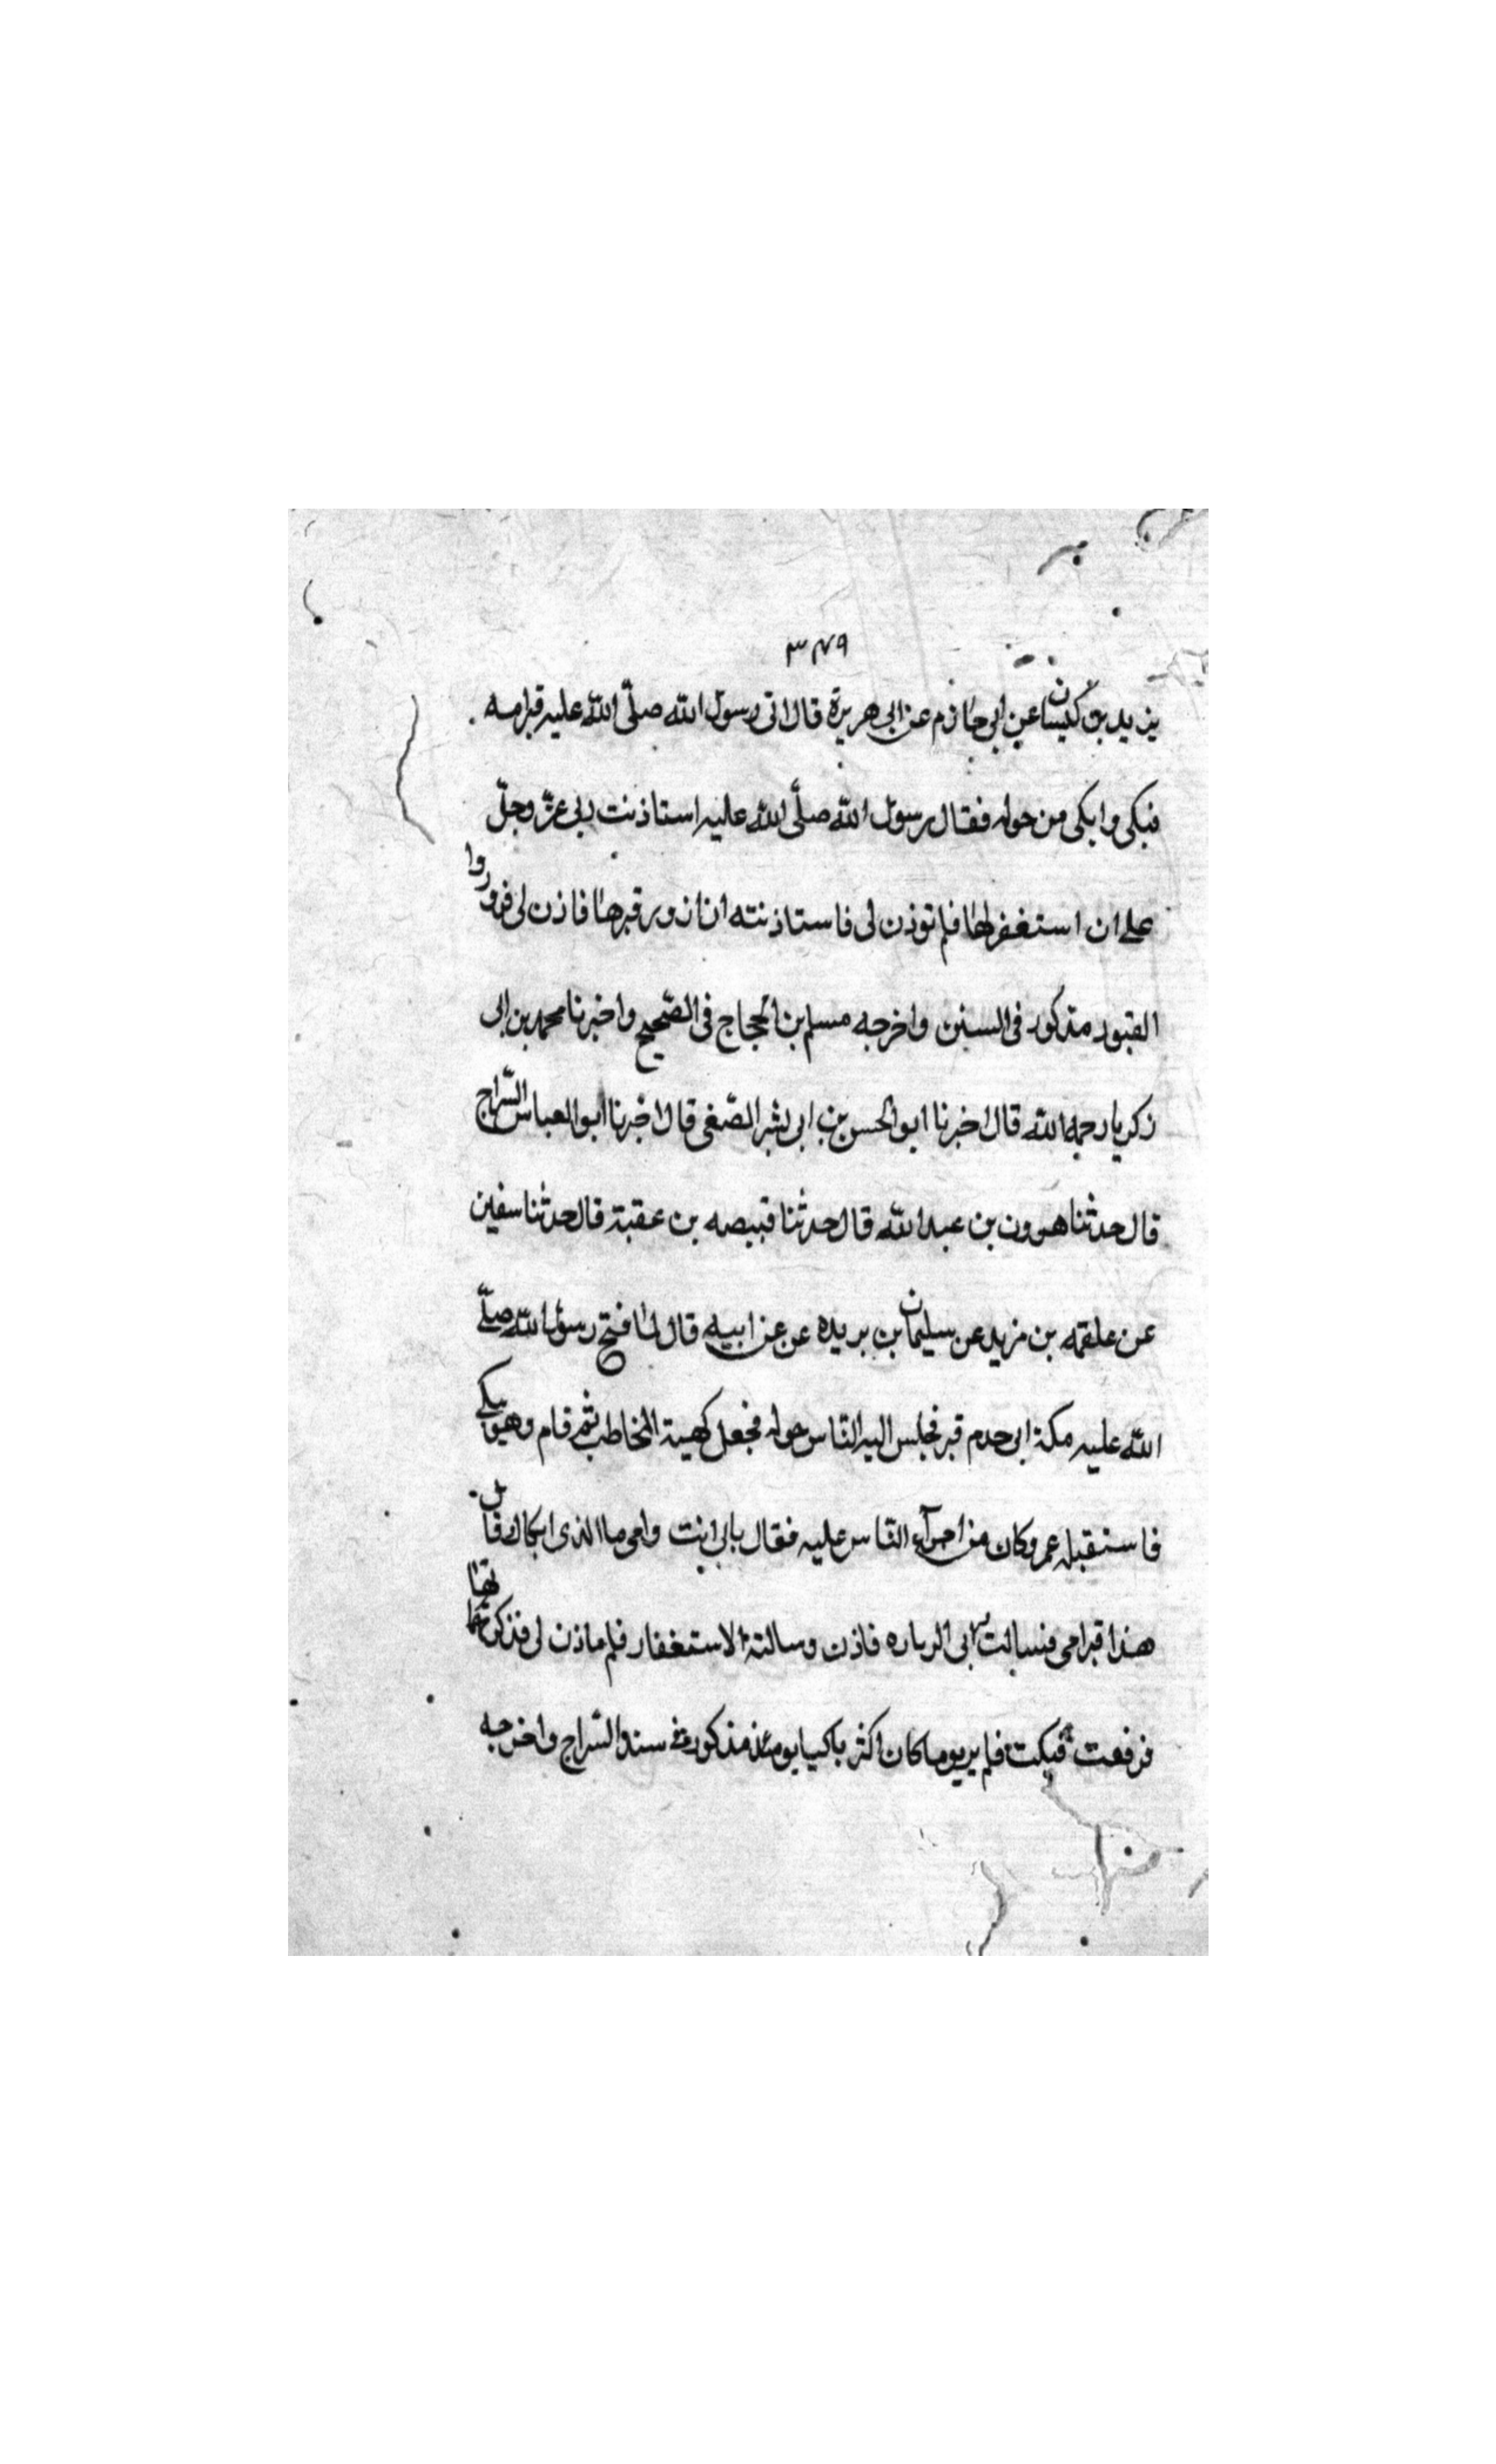 ٣٧٩
يزيد بن كيسان عن ابى حازم عن ابى هريرة قال اتى رسول الله صلّى اللّه عليه قبر امه
فبكى وابكى من حوله فقال رسول اللّه صلّى اللّه عليه استاذنت ربى عزّ وجلّ
على ان استغفر لها فلم توذن لى فاستاذنته ان ازور قبرها فاذن لى فزوروا
القبور مذكور فى السنن واخرجه مسلم بن الحجاج فى الصّحيح واخبرنا محمد بن ابى
زكريا رحمه اللّه قال اخبرنا ابو الحسن بن ابى بشر الصّغى قال اخبرنا ابو العباس السّراج
قال حدثنا هرون بن عبد اللّه قال حدثنا قبيصه بن عقبة قال حدثنا سفين
عن علقمه بن مزيد عن سليمان بن بريده عن عن ابيه قال لما فتح رسول اللّه صلّى
اللّه عليه مكة ابى حدم قبر فجلس اليه النّاس حوله فجعل كهية المخاطب ثم قام وهو يبكى
فاستقبله عمر وكان من اجرآء النّاس عليه فقال بابى انت وامى ما الذى ابكاك قال
هذا قبر امى فسالت ربى الزياره فاذن وسالته الاستغفار فلم ياذن لى فذكرتها
فرفعت فبكت فلم ير يوما كان اكثر باكيا يومئذ مذكور فى مسند السّراج واخرجه